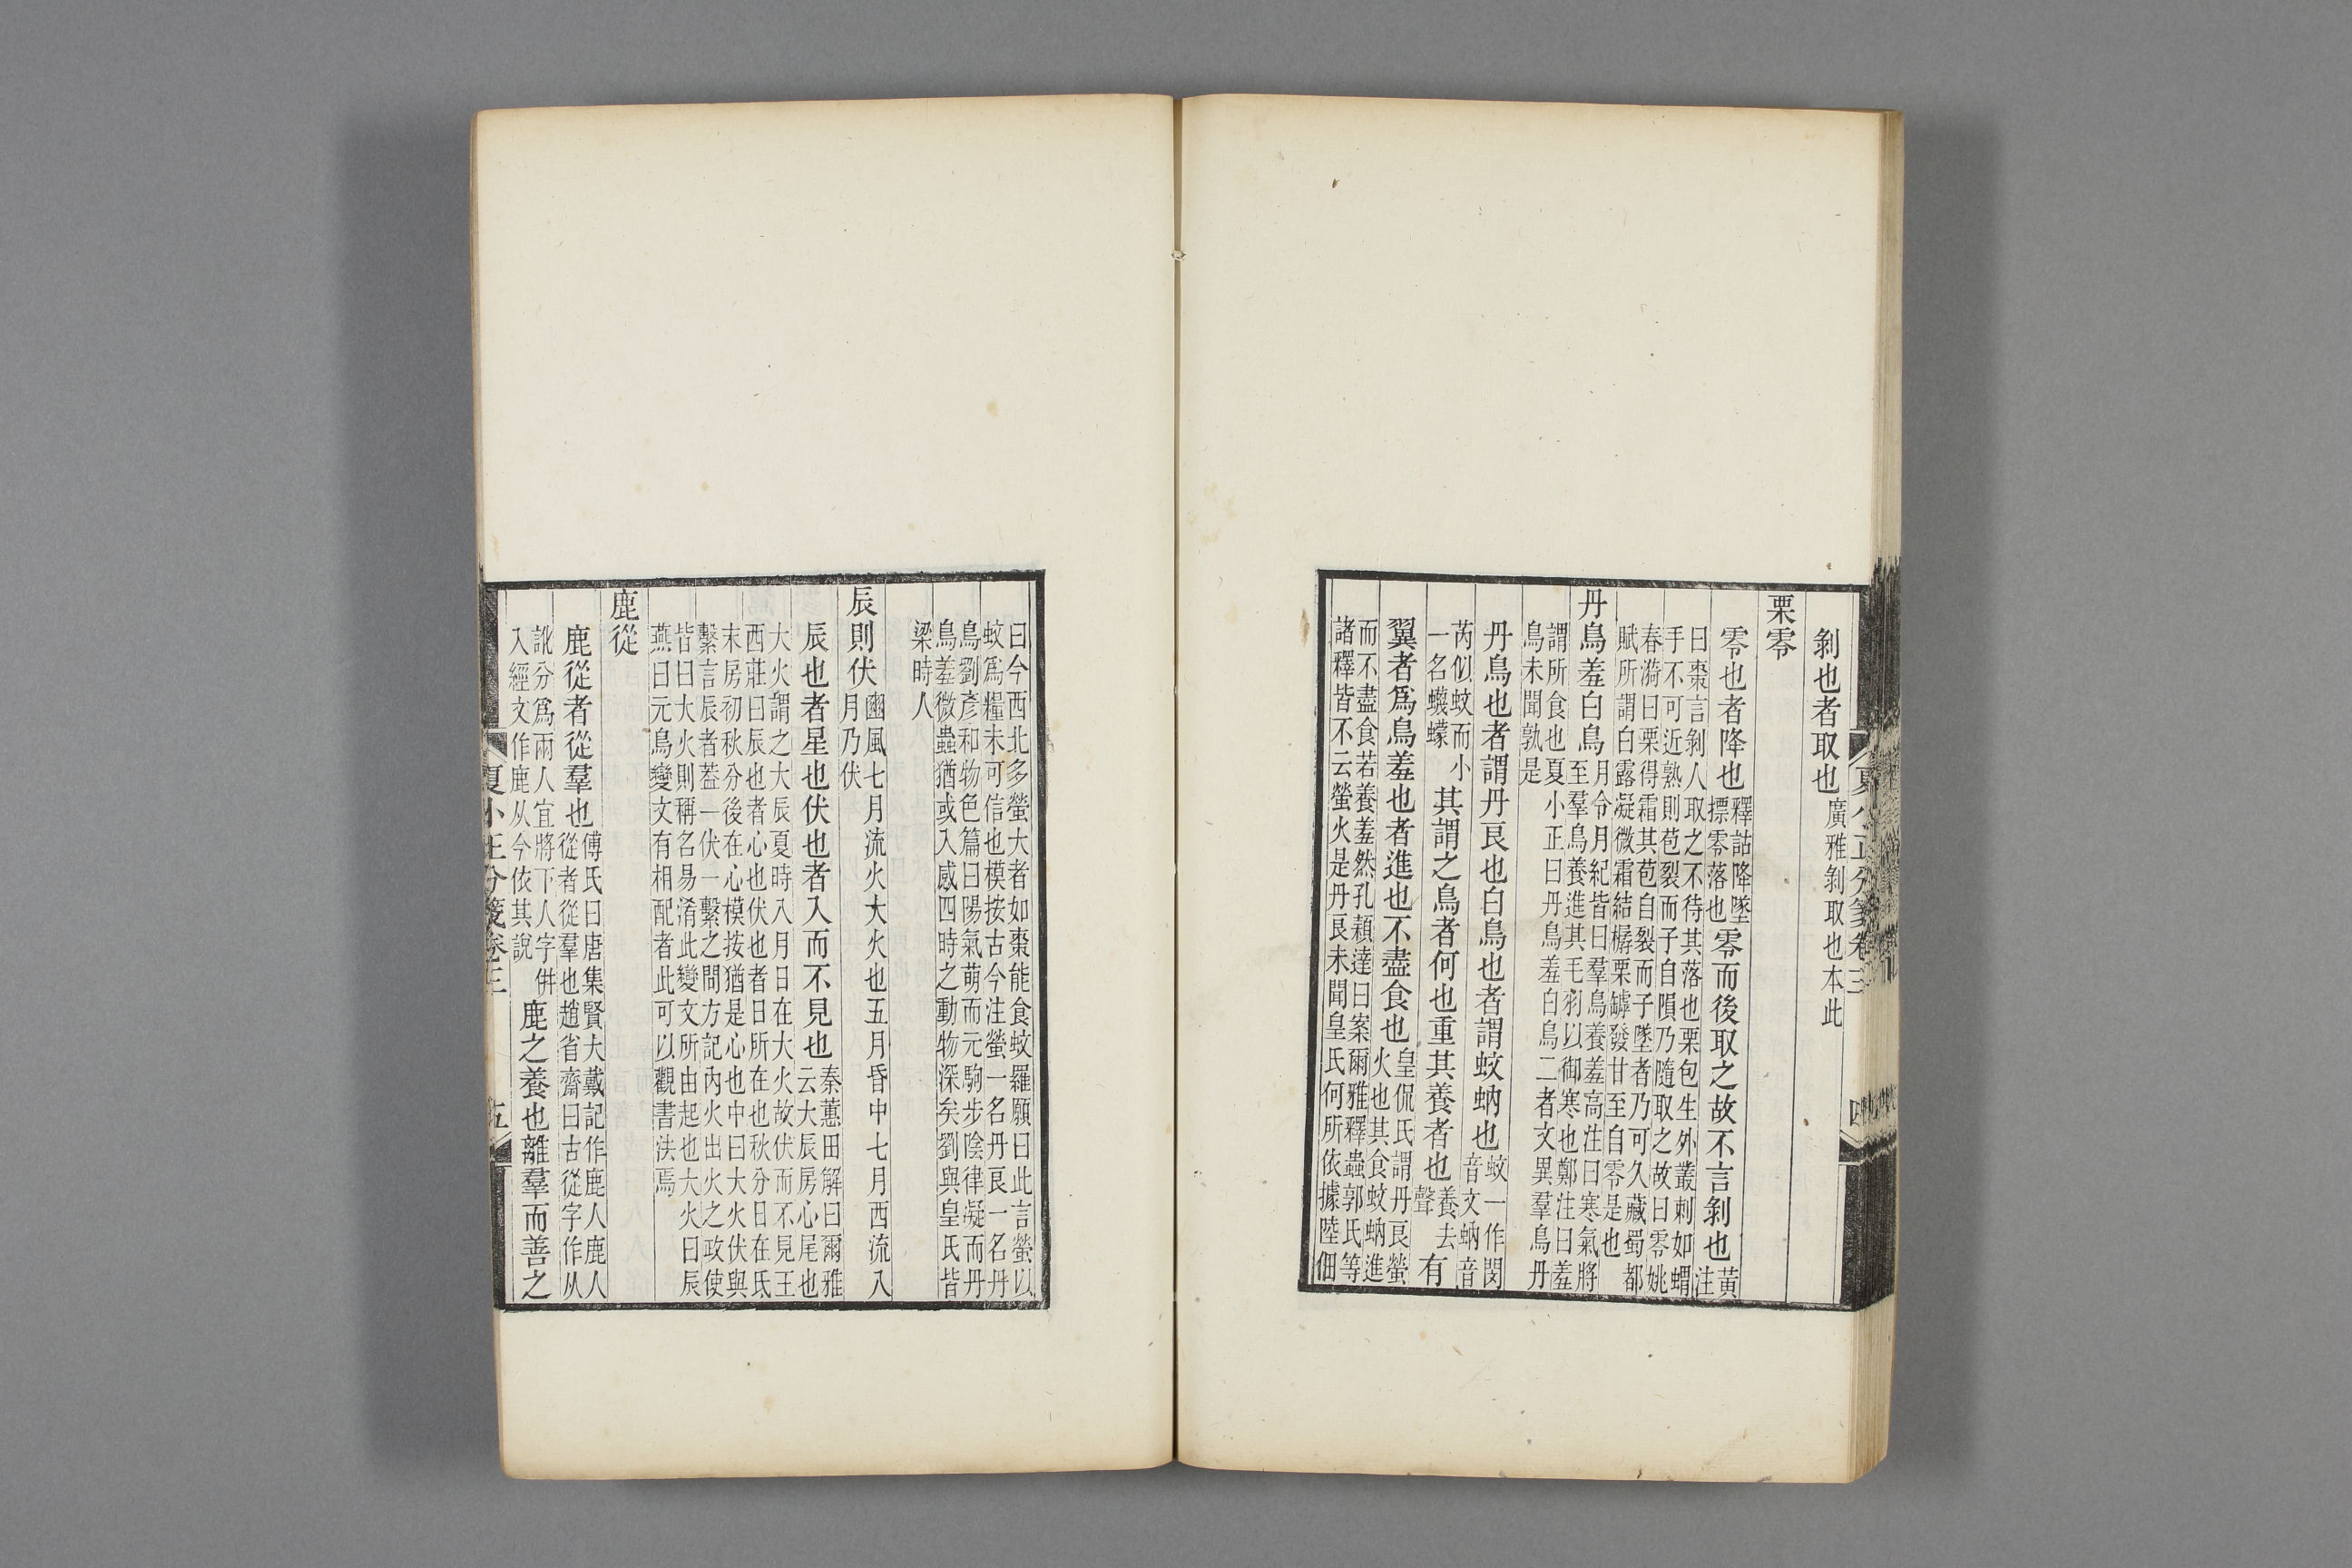 剝也者取也廣雅剝取也本此
栗零
零也者降也釋詁降墜
摽零落也零而後取之故不言剝也黃
注
曰棗言剝人取之不待其落也栗包生外叢刺如蝟
手不可近熟則苞裂而子自隕乃隨取之故曰零姚
春漪曰栗得霜其苞自裂而子墜者乃可久藏蜀都
賦所謂白露凝微霜結樼栗罅發甘至自零是也
丹鳥羞白鳥月令月紀皆曰羣鳥養羞高注曰寒氣將
至羣鳥養進其毛羽以御寒也鄭注曰羞
謂所食也夏小正曰丹鳥羞白鳥二者文異羣鳥丹
鳥未聞孰是
丹鳥也者謂丹良也白鳥也者謂蚊蚋也蚊一作閔
音文蚋音
芮似蚊而小
一名蠛蠓其謂之鳥者何也重其養者也養去
聲有
翼者爲鳥羞也者進也不盡食也皇侃氏謂丹良螢
火也其食蚊蚋進
而不盡食若養羞然孔顈達曰案爾雅釋蟲郭氏等
諸釋皆不云螢火是丹良未聞皇氏何所依據陸佃
夏小正分箋卷三
四
曰今西北多螢大者如棗能食蚊羅願曰此言螢以
蚊爲糧未可信也模按古今注螢一名丹良一名丹
鳥劉彥和物色篇曰陽氣萌而元駒步陰律凝而丹
鳥羞微蟲猶或入感四時之動物深矣劉與皇氏皆
梁時人
辰則伏豳風七月流火大火也五月昏中七月西流入
月乃伏
辰也者星也伏也者入而不見也秦蕙田解曰爾雅
云大辰房心尾也
大火謂之大辰夏時入月日在大火故伏而不見王
西莊曰辰也者心也伏也者日所在也秋分日在氐
末房初秋分後在心模按猶是心也中曰大火伏與
繫言辰者葢一伏一繫之間方記內火出火之政使
皆曰大火則稱名易淆此變文所由起也大火曰辰
燕曰元鳥變文有相配者此可以觀書法焉
鹿從
鹿從者從羣也傅氏曰唐集賢大戴記作鹿人鹿人
從者從羣也趙省齋曰古從字作从
訛分爲兩人宜將下人字倂
入經文作鹿从今依其說鹿之養也離羣而善之
夏小正分箋卷三
五